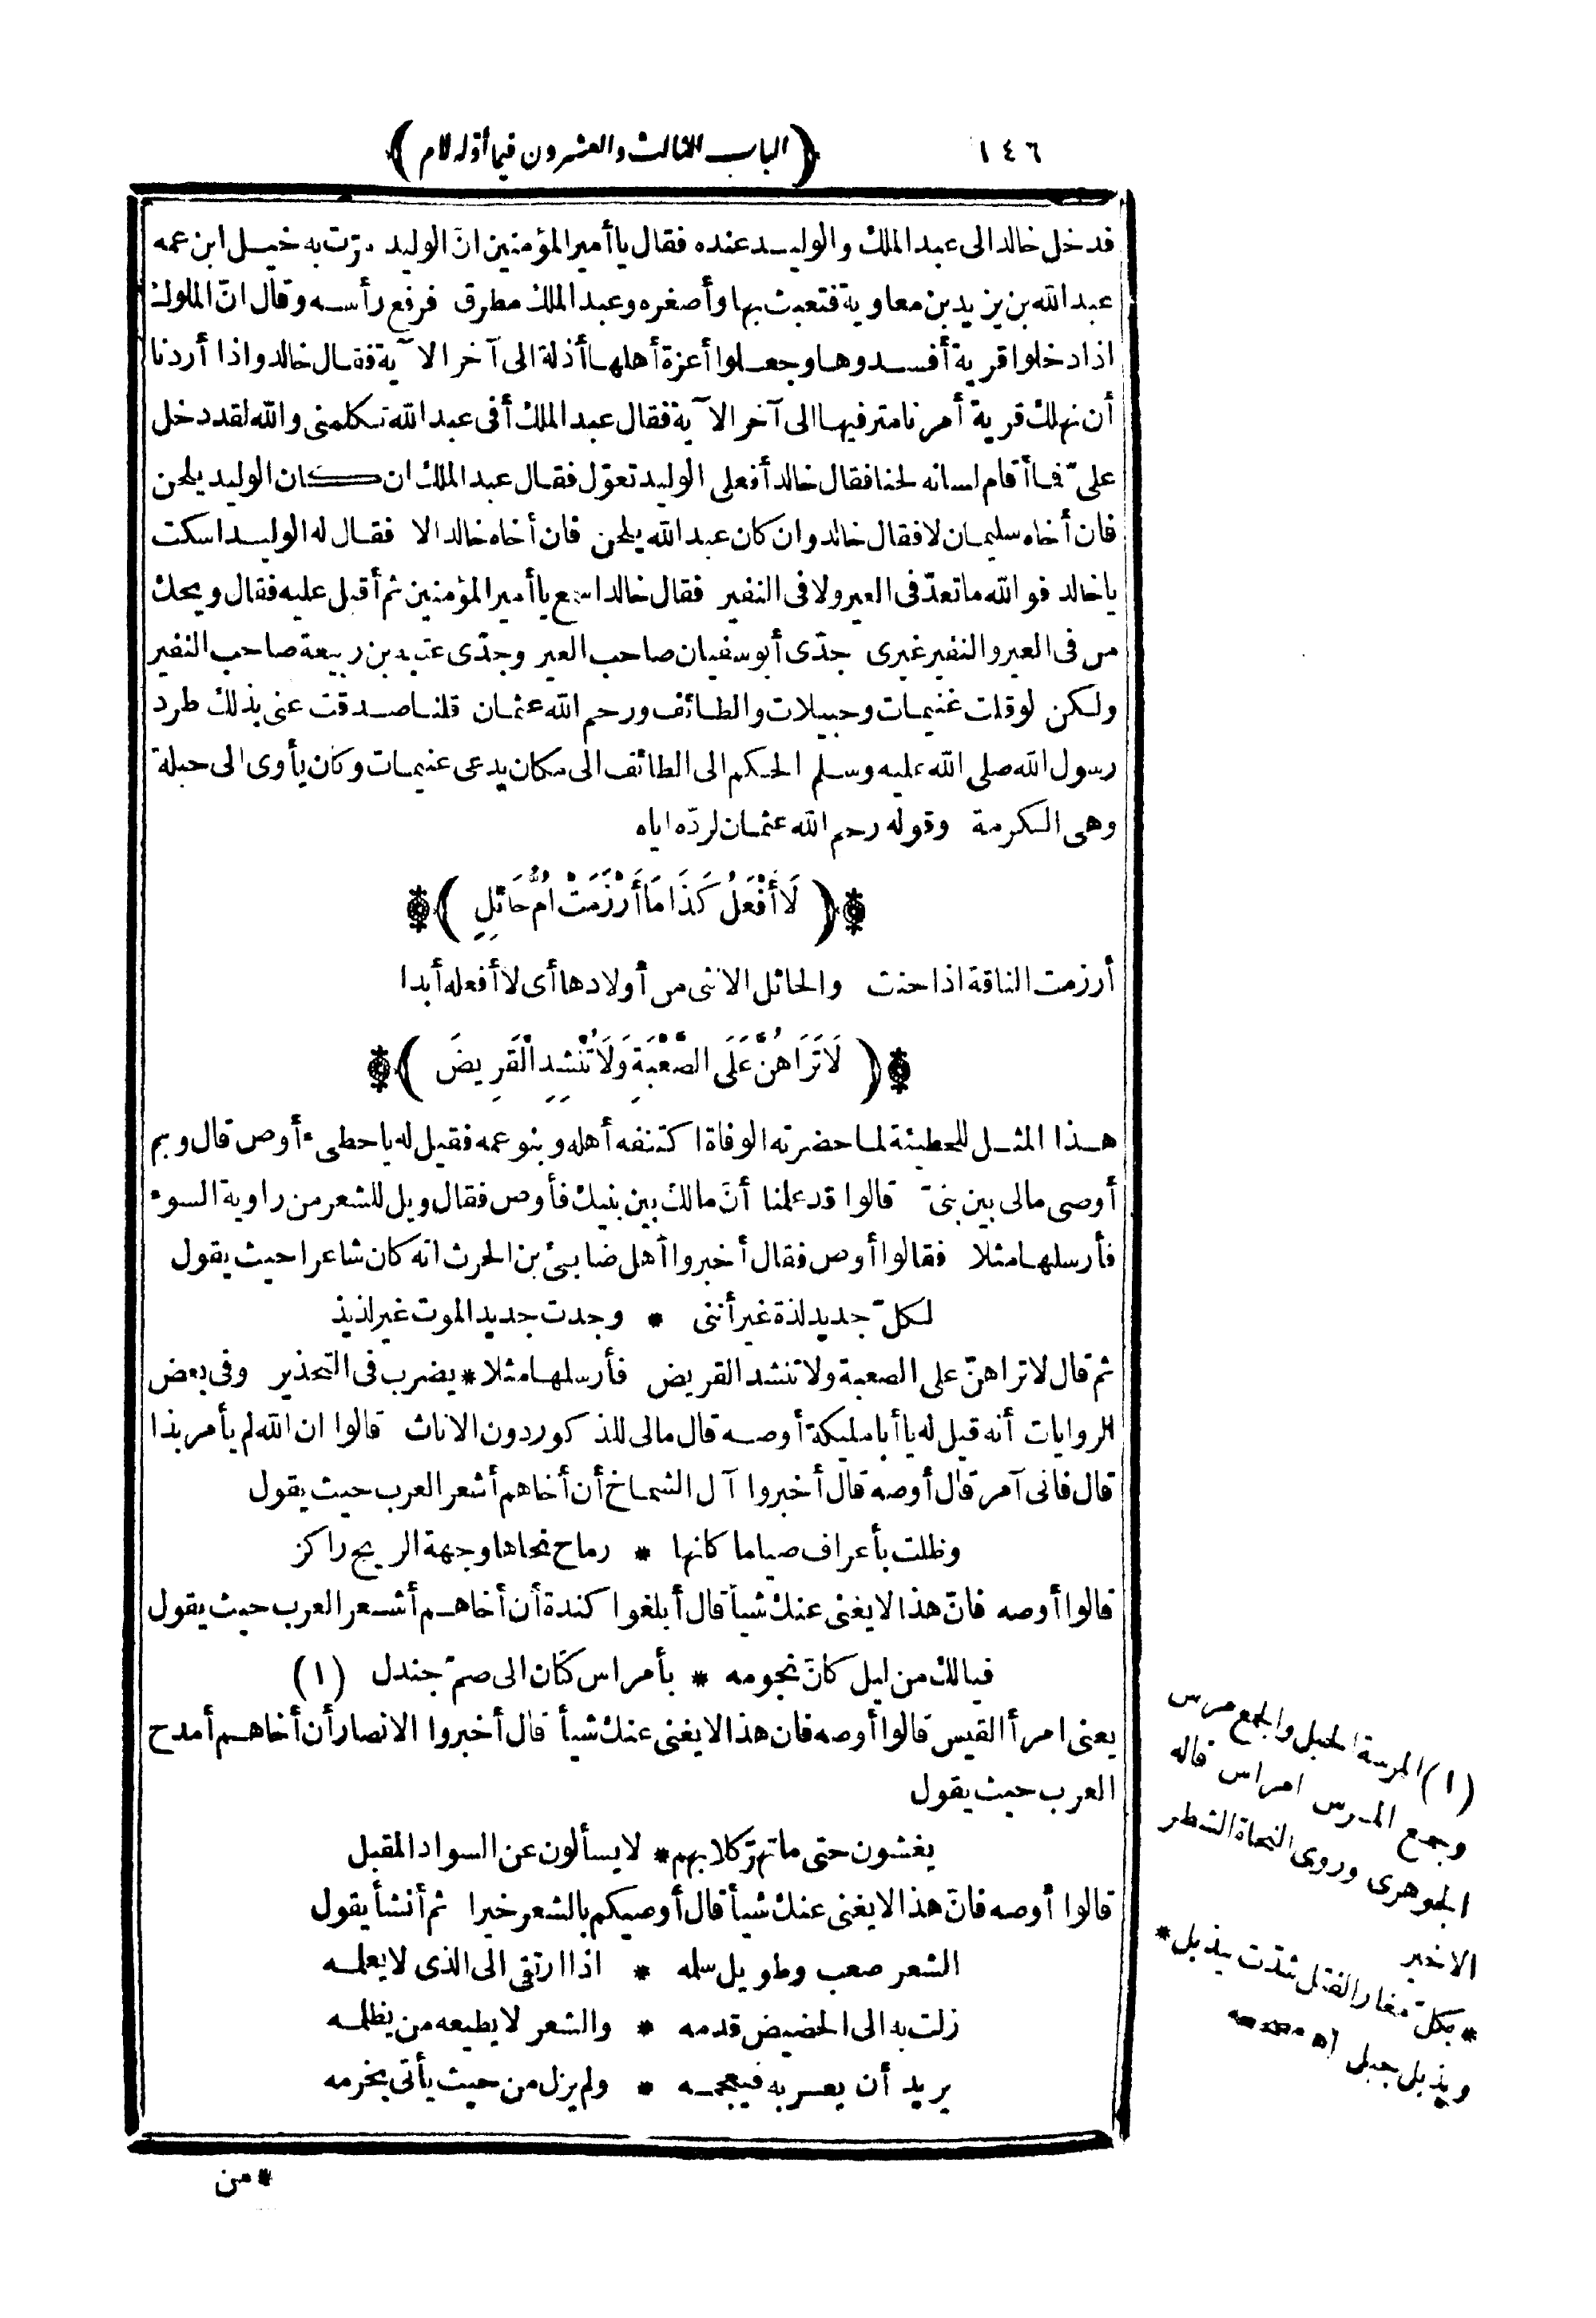 ١٤٦
(الباب الثالث والعشرون فيما أوّله لام)
فدخل خالد الى عبد الملك والوليد عنده فقال يا أمير المؤمنين انّ الوليد مرّت به خيل ابن عمه
عبد الله بن يزيد بن معاوية فتعبث بها وأصغره وعبد الملك مطرق فرفع رأسه وقال انّ الملوك
اذا دخلوا قرية أفسدوها وجعلوا أعزة أهلها أذلة الى آخر الآية فقال خالد واذا أردنا
أن نهلك قرية أمرنا مترفيها الى آخر الآية فقال عبد الملك أفى عبد الله تكلمنى والله لقد دخل
علىّ فما أقام لسانه لحنا فقال خالد أفعلى الوليد تعوّل فقال عبد الملك ان كان الوليد يلحن
فان أخاه سليمان لا فقال خالد وان كان عبد الله يلحن فان أخاه خالد الا فقال له الوليد اسكت
يا خالد فو الله ما تعدّ فى العير ولا فى النفير فقال خالد اسمع يا أمير المؤمنين ثم أقبل عليه فقال ويحك
من فى العير والنفير غيرى جدّى أبو سفيان صاحب العير وجدّى عتبة بن ربيعة صاحب النفير
ولكن لو قلت غنيمات وحبيلات والطائف ورحم الله عثمان قلنا صدقت عنى بذلك طرد
رسول الله صلى الله عليه وسلم الحكم الى الطائف الى مكان يدعى غنيمات وكان يأوى الى حبلة
وهى الكرمة وقوله رحم الله عثمان لردّه اياه
(لَا أَفْعَلُ كَذَا مَا أَرْزَمَتْ اُمُّ حَائِلٍ)
أرزمت الناقة اذا حنت والحائل الانثى من أولادها أى لا أفعله أبدا
(لَا تَرَاهَنَّ عَلَى الصَّعْبَةِ وَلَا تُنْشِدِ الْقَرِيضَ)
هذا المثل للحطيئة لما حضرته الوفاة اكتنفه أهله وبنو عمه فقيل له يا حطىء أوص قال وبم
أوصى مالى بين بنىّ قالوا قد علمنا أنّ مالك بين بنيك فأوص فقال ويل للشعر من راوية السوء
فأرسلها مثلا فقالوا أوص فقال أخبروا أهل ضابئ بن الحرث انه كان شاعرا حيث يقول
لكلّ جديد لذة غير أننى * وجدت جديد الموت غير لذيذ
ثم قال لا تراهنّ على الصعبة ولا تنشد القريض فأرسلها مثلا * يضرب فى التحذير وفى بعض
الروايات أنه قيل له يا أبا مليكة أوصه قال مالى للذكور دون الاناث قالوا ان الله لم يأمر بذا
قال فانى آمر قال أوصه قال أخبروا آل الشماخ أن أخاهم أشعر العرب حيث يقول
وظلت بأعراف صياما كانها * رماح نحاها وجهة الريح راكز
قالوا أوصه فانّ هذا لا يغنى عنك شيأ قال أبلغوا كندة أن أخاهم أشعر العرب حيث يقول
فيالك من ليل كانّ نجومه * بأمراس كتان الى صمّ جندل (١)
يعنى امرأ القيس قالوا أوصه فان هذا لا يغنى عنك شيأ قال أخبروا الانصار أن أخاهم أمدح
العرب حيث يقول
يغشون حتى ما تهرّ كلابهم * لا يسألون عن السواد المقبل
قالوا أوصه فانّ هذا لا يغنى عنك شيأ قال أوصيكم بالشعر خيرا ثم أنشأ يقول
الشعر صعب وطويل سلمه * اذا ارتقى الى الذى لا يعلمه
زلت به الى الحضيض قدمه * والشعر لا يطيعه من يظلمه
يريد أن يعربه فيعجمه * ولم يزل من حيث يأتى يخرمه
* من
(١) المرسة الحبل والجمع مرس
وجمع المرس امراس قاله
الجوهرى وروى النحاة الشطر
الاخير
* بكلّ مغار الفتل شدّت بيذبل *
ويذبل جبل اه